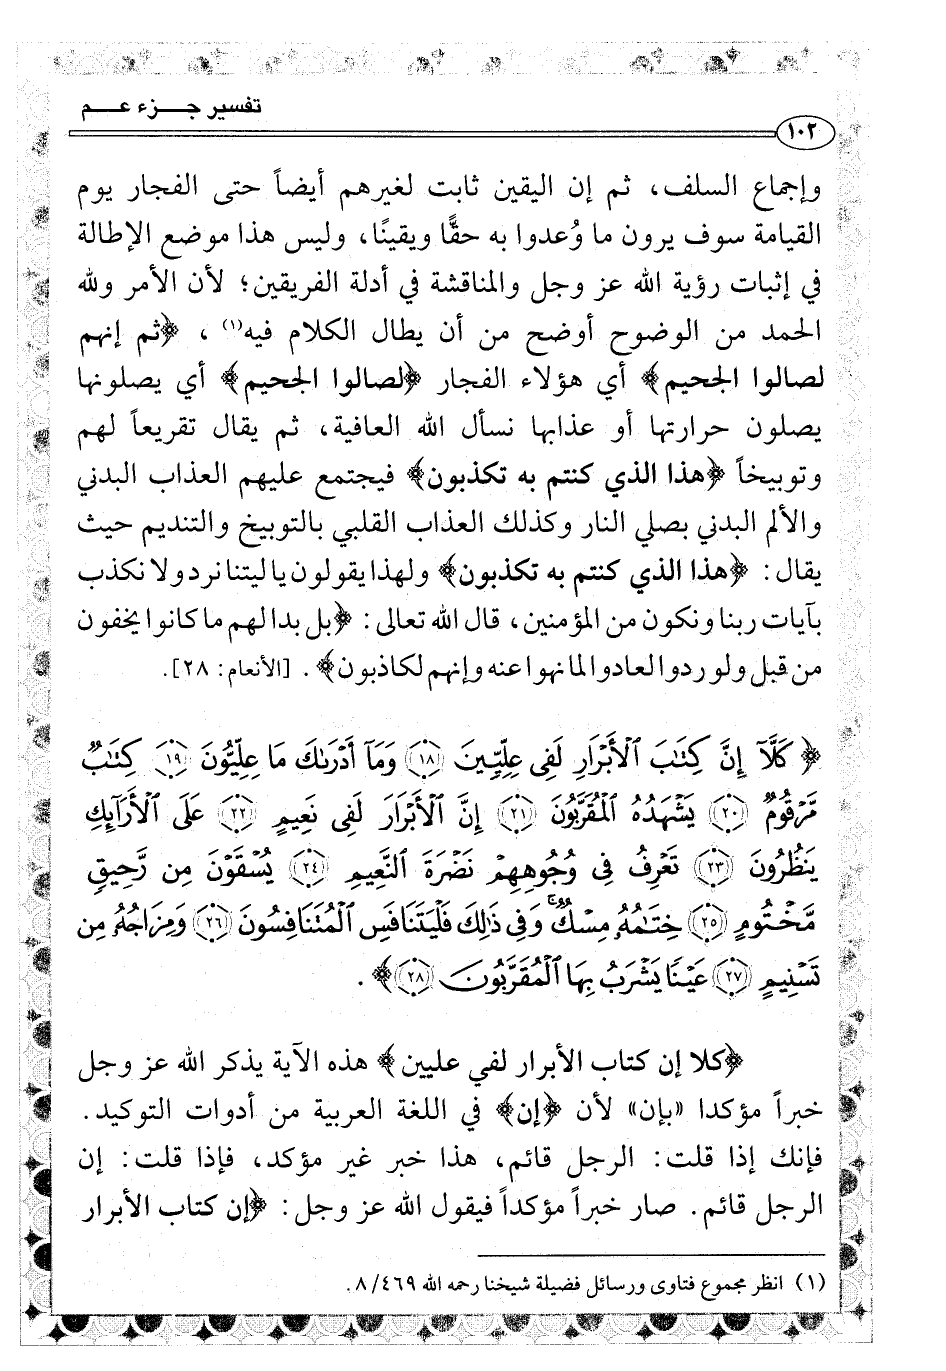 تفسير جزء عم
١٠٢
وإجماع السلف، ثم إن اليقين ثابت لغيرهم أيضاً حتى الفجار يوم
القيامة سوف يرون ما وُعدوا به حقًّا ويقينًا، وليس هذا موضع الإطالة
في إثبات رؤية الله عز وجل والمناقشة في أدلة الفريقين؛ لأن الأمر ولله
الحمد من الوضوح أوضح من أن يطال الكلام فيه(١) ، ﴿ثم إنهم
لصالوا الجحيم﴾ أي هؤلاء الفجار ﴿لصالوا الجحيم﴾ أي يصلونها
يصلون حرارتها أو عذابها نسأل الله العافية، ثم يقال تقريعاً لهم
وتوبيخاً ﴿هذا الذي كنتم به تكذبون﴾ فيجتمع عليهم العذاب البدني
والألم البدني بصلي النار وكذلك العذاب القلبي بالتوبيخ والتنديم حيث
يقال: ﴿هذا الذي كنتم به تكذبون﴾ ولهذا يقولون يا ليتنا نرد ولا نكذب
بآيات ربنا ونكون من المؤمنين، قال الله تعالى: ﴿بل بدا لهم ما كانوا يخفون
من قبل ولو ردوا لعادوا لما نهوا عنه وإنهم لكاذبون﴾ . [الأنعام: ٢٨].
﴿ كَلَّآ إِنَّ كِتَٰبَ ٱلْأَبْرَارِ لَفِى عِلِّيِّينَ ١٨ وَمَآ أَدْرَىٰكَ مَا عِلِّيُّونَ ١٩ كِتَٰبٌ
مَّرْقُومٌ ٢٠ يَشْهَدُهُ ٱلْمُقَرَّبُونَ ٢١ إِنَّ ٱلْأَبْرَارَ لَفِى نَعِيمٍ ٢٢ عَلَى ٱلْأَرَآئِكِ
يَنظُرُونَ ٢٣ تَعْرِفُ فِى وُجُوهِهِمْ نَضْرَةَ ٱلنَّعِيمِ ٢٤ يُسْقَوْنَ مِن رَّحِيقٍ
مَّخْتُومٍ ٢٥ خِتَٰمُهُۥ مِسْكٌ ۚ وَفِى ذَٰلِكَ فَلْيَتَنَافَسِ ٱلْمُتَنَافِسُونَ ٢٦ وَمِزَاجُهُۥ مِن
تَسْنِيمٍ ٢٧ عَيْنًا يَشْرَبُ بِهَا ٱلْمُقَرَّبُونَ ٢٨ ﴾ .
﴿كلا إن كتاب الأبرار لفي عليين﴾ هذه الآية يذكر الله عز وجل
خبراً مؤكدا «بإن» لأن ﴿إن﴾ في اللغة العربية من أدوات التوكيد.
فإنك إذا قلت: الرجل قائم، هذا خبر غير مؤكد، فإذا قلت: إن
الرجل قائم. صار خبراً مؤكداً فيقول الله عز وجل: ﴿إن كتاب الأبرار
(١) انظر مجموع فتاوى ورسائل فضيلة شيخنا رحمه الله ٨/٤٦٩.